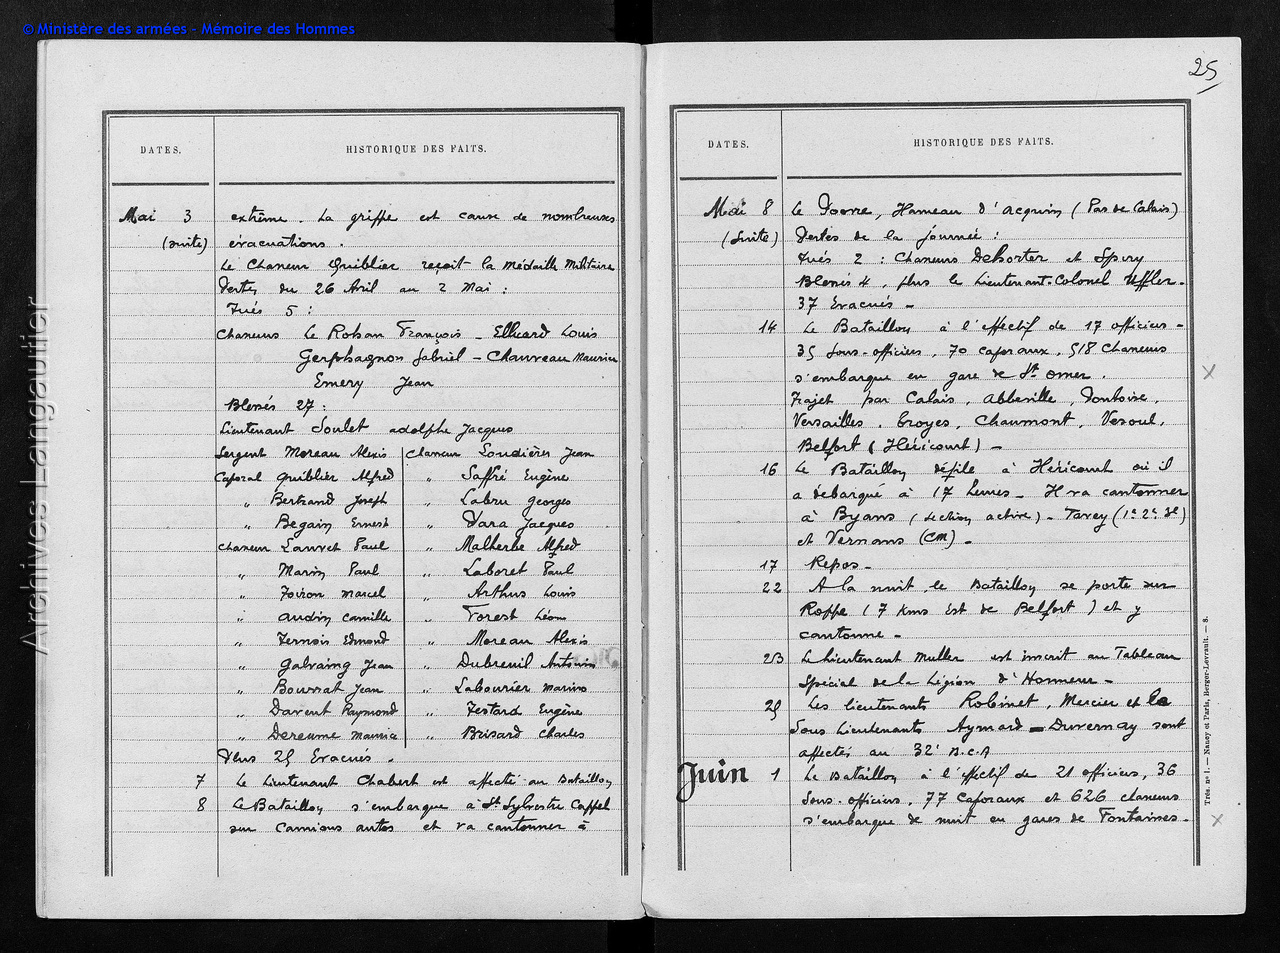 © Ministère des armées - Mémoire des Hommes
Archives Langautier
DATES.
HISTORIQUE DES FAITS.
Mai 3 extrême. La grippe est cause de nombreuses
(suite) évacuations.
Le Chasseur Quiblier reçoit la Médaille Militaire
Pertes du 26 Avril au 2 Mai :
Tués 5 :
Chasseurs Le Rohan François - Elluard Louis
Gerphagnon Gabriel - Chauveau Maurice
Emery Jean
Blessés 27 :
Lieutenant Soulet adolphe Jacques
Sergent Moreau Alexis Chasseur Loudières Jean
Caporal Quiblier Alfred " Saffré Eugène
" Bertrand Joseph " Labru Georges
" Begain Ernest " Vara Jacques
Chasseur Lauvet Paul " Malherbe Alfred
" Marin Paul " Laboret Paul
" Foiron Marcel " Arthus Louis
" Audin Camille " Forest Léon
" Ternois Edmond " Moreau Alexis
" Galvaing Jean " Dubreuil Antonin
" Bourrat Jean " Labourier Marius
" Davent Raymond " Testard Eugène
" Dereume Maurice " Brisard Charles
Plus 25 Evacués.
7 Le Lieutenant Chabert est affecté au Bataillon
8 Le Bataillon s'embarque à St Sylvestre Cappel
sur camions autos et va cantonner à
25
DATES.
HISTORIQUE DES FAITS.
Mai 8 Le Poovre, Hameau d'Acquin (Pas de Calais)
(Suite) Pertes de la journée :
Tués 2 : Chasseurs Dehorter et Spiry
Blessés 4, plus le Lieutenant-Colonel Uffler.
37 Evacués -
14 Le Bataillon à l'effectif de 17 officiers -
35 Sous-officiers, 70 caporaux, 518 Chasseurs
s'embarque en gare de St Omer.
Trajet par Calais, Abbeville, Pontoise,
Versailles, Troyes, Chaumont, Vesoul,
Belfort (Héricourt) -
16 Le Bataillon défile à Héricourt où il
a débarqué à 17 heures - Il va cantonner
à Byans (section active) - Tavey (1e 2e 3e)
et Vernans (CM) -
17 Repos -
22 A la nuit le Bataillon se porte sur
Roppe (7 kms Est de Belfort) et y
cantonne -
23 Le Lieutenant Muller est inscrit au Tableau
Spécial de la Légion d'Honneur -
25 Les lieutenants Robinet, Mercier et le
Sous Lieutenants Aymard - Duvernay sont
affectés au 32e B.C.A
Juin 1 Le Bataillon à l'effectif de 21 officiers, 36
Sous-officiers, 77 Caporaux et 626 chasseurs
s'embarque de nuit en gares de Fontaines -
Trés. no 1. — Nancy et Paris, Berger-Levrault. — 8.